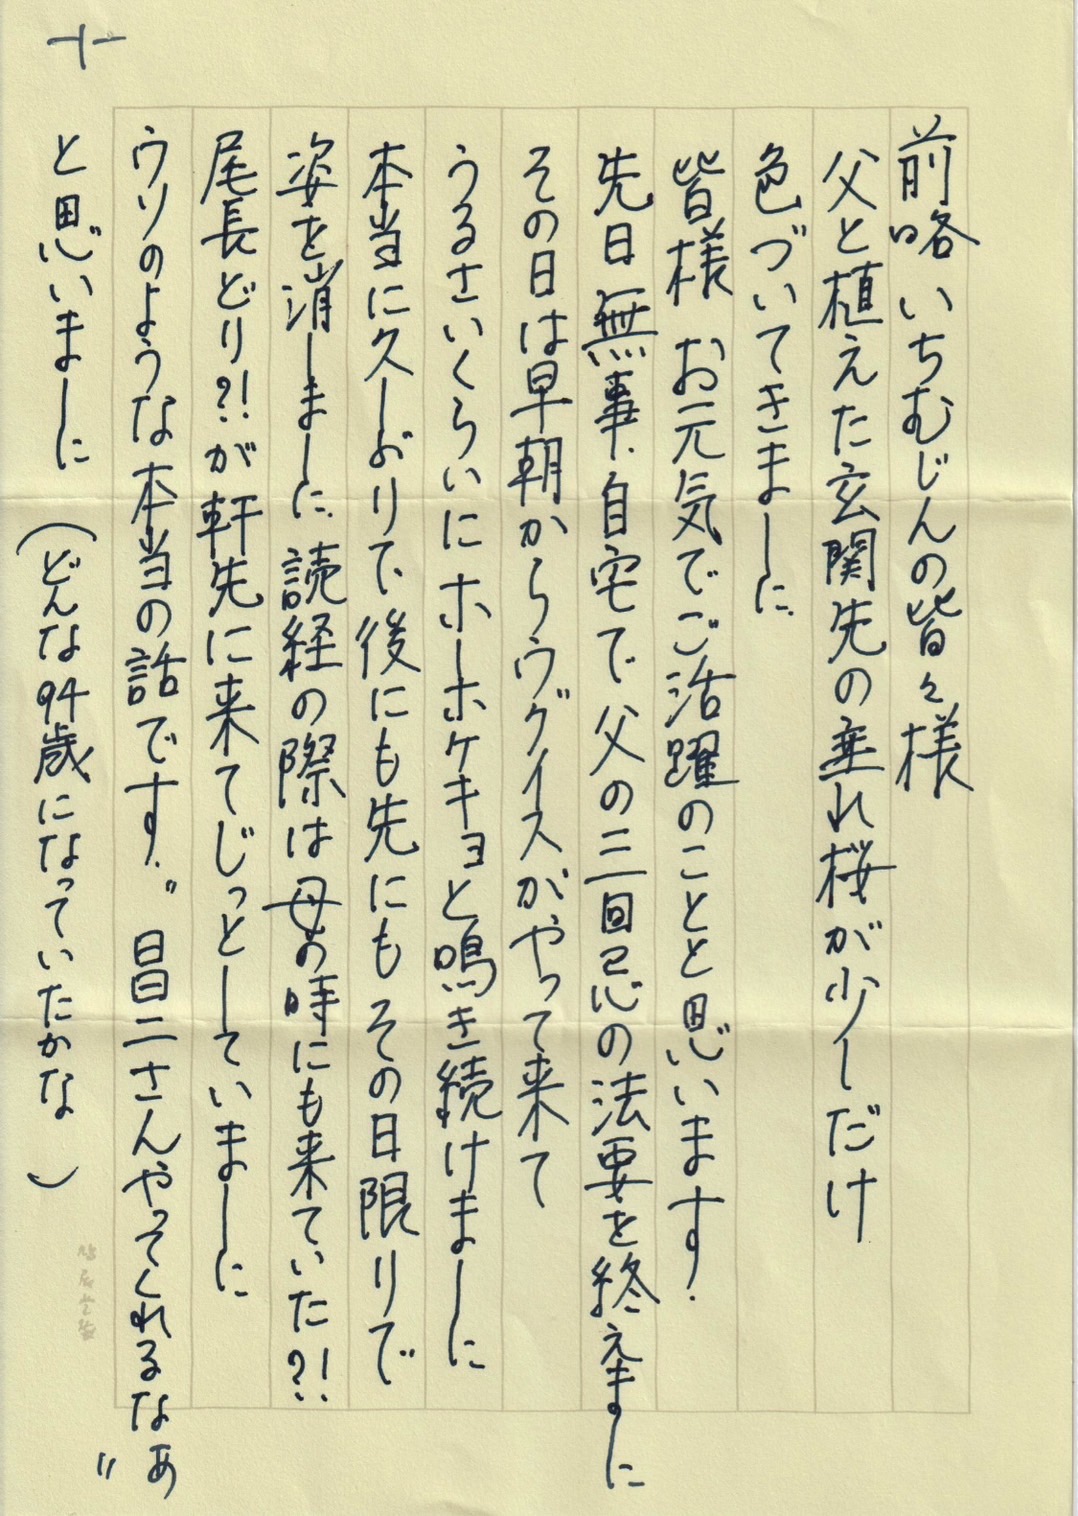 前略 いちむじんの皆々様
父と植えた玄関先の垂れ桜が少しだけ
色づいてきました。
皆様 お元気でご活躍のことと思います。
先日無事、自宅で父の三回忌の法要を終えました
その日は早朝からウグイスがやって来て
うるさいくらいにホーホケキョと鳴き続けました
本当に久しぶりで、後にも先にもその日限りで
姿を消しました。読経の際は母の時にも来ていた?!
尾長どり?!が軒先に来てじっとしていました
ウソのような本当の話です。〝昌二さんやってくれるなぁ〟
と思いました (どんな94歳になっていたかな )